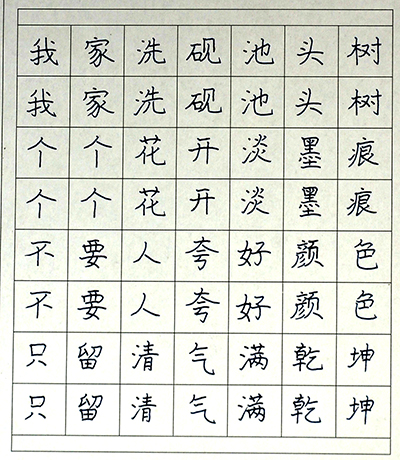 我家洗砚池头树
我家洗砚池头树
个个花开淡墨痕
个个花开淡墨痕
不要人夸好颜色
不要人夸好颜色
只留清气满乾坤
只留清气满乾坤